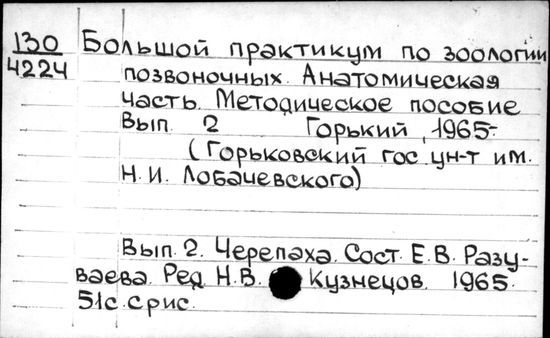 130 Большой практикум по зоологии
4224 позвоночных. Анатомическая
часть. Методическое пособие
Вып. 2 Горький, 1965.
(Горьковский гос. ун-т им.
Н.И. Лобачевского)
Вып. 2. Черепаха. Сост. Е.В. Разу-
ваева. Ред. Н.В. Кузнецов. 1965.
51с. с рис.